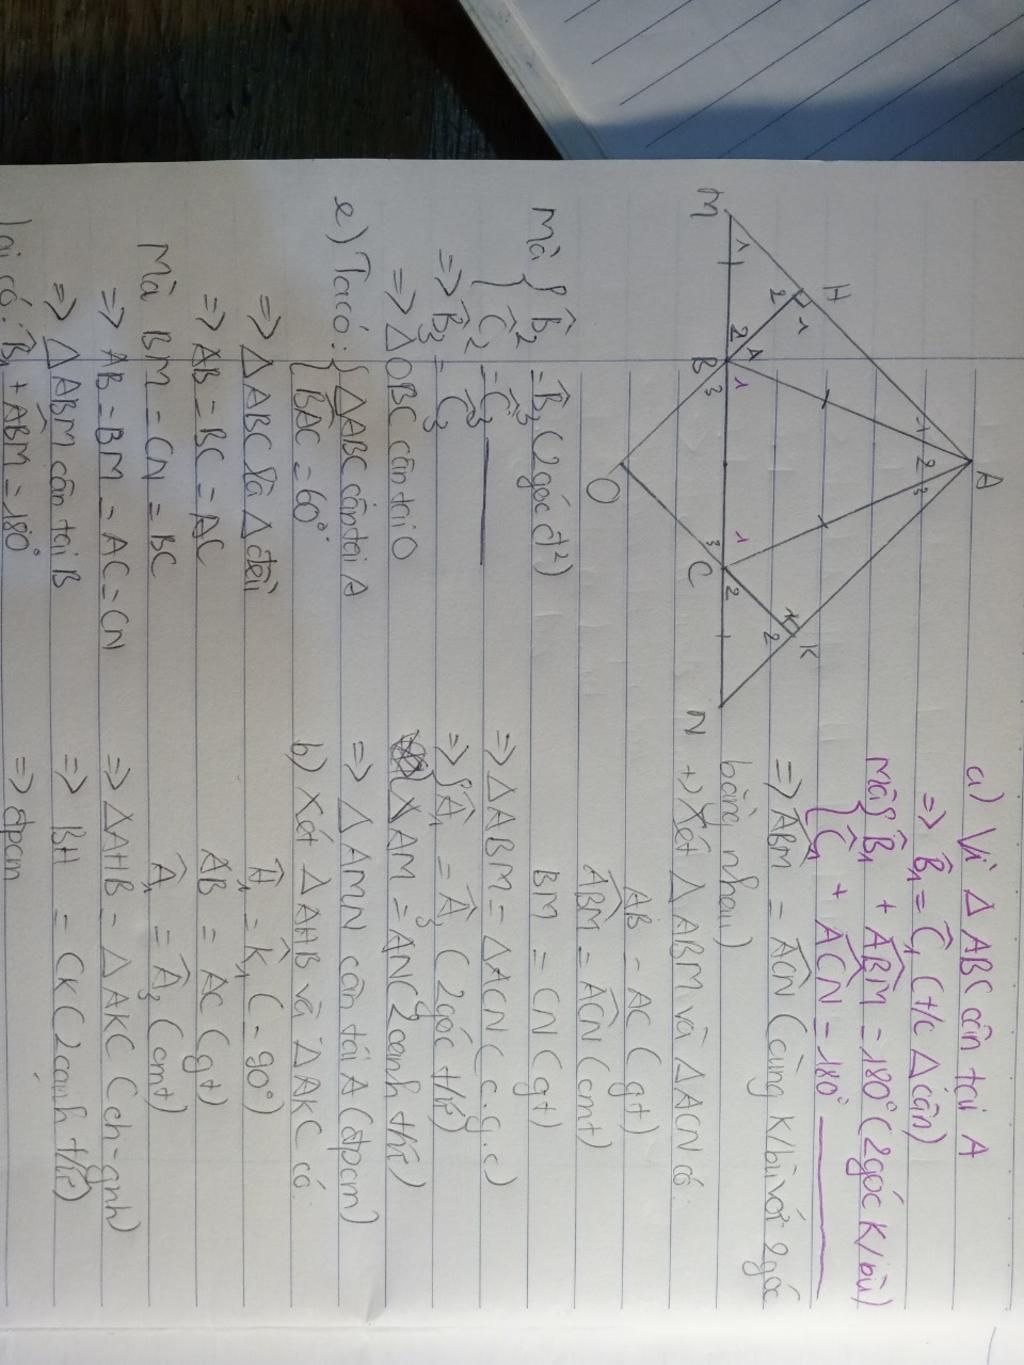 M
H
A
B
C
K
N
O
1
1
2
1
2
1
3
1
2
3
1
3
2
1
2
a) Vì Δ ABC cân tại A
=> B̂₁ = Ĉ₁ (t/c Δ cân)
Mà { B̂₁ + ABM̂ = 180° (2 góc K/bù)
{ Ĉ₁ + ACN̂ = 180°
=> ABM̂ = ACN̂ (cùng K/bù với 2 góc
bằng nhau)
+) Xét Δ ABM và Δ ACN có:
AB = AC (gt)
ABM̂ = ACN̂ (cmt)
BM = CN (gt)
=> ΔABM = ΔACN (c.g.c)
=> { Â₁ = Â₃ (2 góc t/ứ)
{ AM = AN (2 cạnh t/ứ)
=> Δ AMN cân tại A (đpcm)
b) Xét Δ AHB và Δ AKC có:
Ĥ₁ = K̂₁ (= 90°)
AB = AC (gt)
Â₁ = Â₃ (cmt)
=> ΔAHB = Δ AKC (ch-gnh)
=> BH = CK (2 cạnh t/ứ)
=> đpcm
Mà { B̂₂ = B̂₃ (2 góc đ²)
{ Ĉ₂ = Ĉ₃
=> B̂₃ = Ĉ₃
=> Δ OBC cân tại O
e) Ta có: { ΔABC cân tại A
{ BAĈ = 60°
=> Δ ABC là Δ đều
=> AB = BC = AC
Mà BM = CN = BC
=> AB = BM = AC = CN
=> Δ ABM cân tại B
Lại có: B̂₁ + ABM̂ = 180°